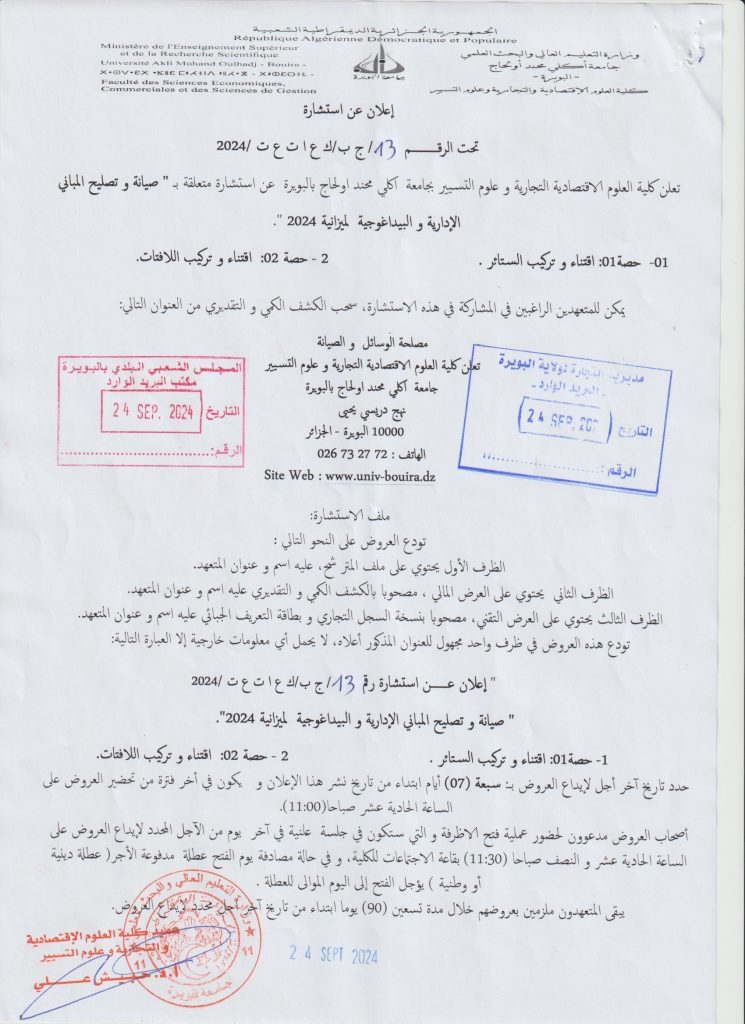 الجمهورية الجزائرية الديمقراطية الشعبية
République Algérienne Démocratique et Populaire
Ministère de l'Enseignement Supérieur
et de la Recherche Scientifique
Université Akli Mohand Oulhadj - Bouira -
Faculté des Sciences Economiques,
Commerciales et des Sciences de Gestion
وزارة التعليم العالي والبحث العلمي
جامعة أكلي محند أولحاج
- البويرة -
كلية العلوم الاقتصادية والتجارية وعلوم التسيير
جامعة البويرة
إعلان عن استشارة
تحت الرقـــم 13/ج ب/ك ع ا ت ع ت /2024
تعلن كلية العلوم الاقتصادية التجارية و علوم التسيير بجامعة اكلي محند اولحاج بالبويرة عن استشارة متعلقة بـ " صيانة و تصليح المباني
الإدارية و البيداغوجية لميزانية 2024 ".
01- حصة01: اقتناء و تركيب الستائر . 2 - حصة 02: اقتناء و تركيب اللافتات.
يمكن للمتعهدين الراغبين في المشاركة في هذه الاستشارة، سحب الكشف الكمي و التقديري من العنوان التالي:
مصلحة الوسائل و الصيانة
تعلن كلية العلوم الاقتصادية التجارية و علوم التسيير
جامعة اكلي محند اولحاج بالبويرة
نهج دريسي يحيى
10000 البويرة - الجزائر
الهاتف : 72 27 73 026
Site Web : www.univ-bouira.dz
المجلس الشعبي البلدي بالبويرة
مكتب البريد الوارد
التاريخ 24 SEP. 2024
الرقم:
مديرية التجارة لولاية البويرة
- البريد الوارد -
التاريخ 24 SEP. 202
الرقم :
ملف الاستشارة:
تودع العروض على النحو التالي :
الظرف الأول يحتوي على ملف المترشح، عليه اسم و عنوان المتعهد.
الظرف الثاني يحتوي على العرض المالي ، مصحوبا بالكشف الكمي و التقديري عليه اسم و عنوان المتعهد.
الظرف الثالث يحتوي على العرض التقني، مصحوبا بنسخة السجل التجاري و بطاقة التعريف الجبائي عليه اسم و عنوان المتعهد.
تودع هذه العروض في ظرف واحد مجهول للعنوان المذكور أعلاه، لا يحمل أي معلومات خارجية إلا العبارة التالية:
" إعلان عـــن استشارة رقم 13/ج ب/ك ع ا ت ع ت /2024
" صيانة و تصليح المباني الإدارية و البيداغوجية لميزانية 2024".
1- حصة01: اقتناء و تركيب الستائر . 2 - حصة 02: اقتناء و تركيب اللافتات.
حدد تاريخ آخر أجل لإيداع العروض بـ: سبعة (07) أيام ابتداء من تاريخ نشر هذا الإعلان و يكون في أخر فترة من تحضير العروض على
الساعة الحادية عشر صباحا(11:00).
أصحاب العروض مدعوون لحضور عملية فتح الاظرفة و التي ستكون في جلسة علنية في آخر يوم من الآجل المحدد لإيداع العروض على
الساعة الحادية عشر و النصف صباحا (11:30) بقاعة الاجتماعات للكلية، و في حالة مصادفة يوم الفتح عطلة مدفوعة الأجر( عطلة دينية
أو وطنية ) يؤجل الفتح إلى اليوم الموالى للعطلة .
يبقى المتعهدون ملزمين بعروضهم خلال مدة تسعين (90) يوما ابتداء من تاريخ آخر أجل محدد لإيداع العروض.
عميد كلية العلوم الإقتصادية
و التجارية و علوم التسيير
أ.د. حبيش علي
وزارة التعليم العالي و البحث العلمي
11
11
جامعة البويرة
24 SEPT 2024